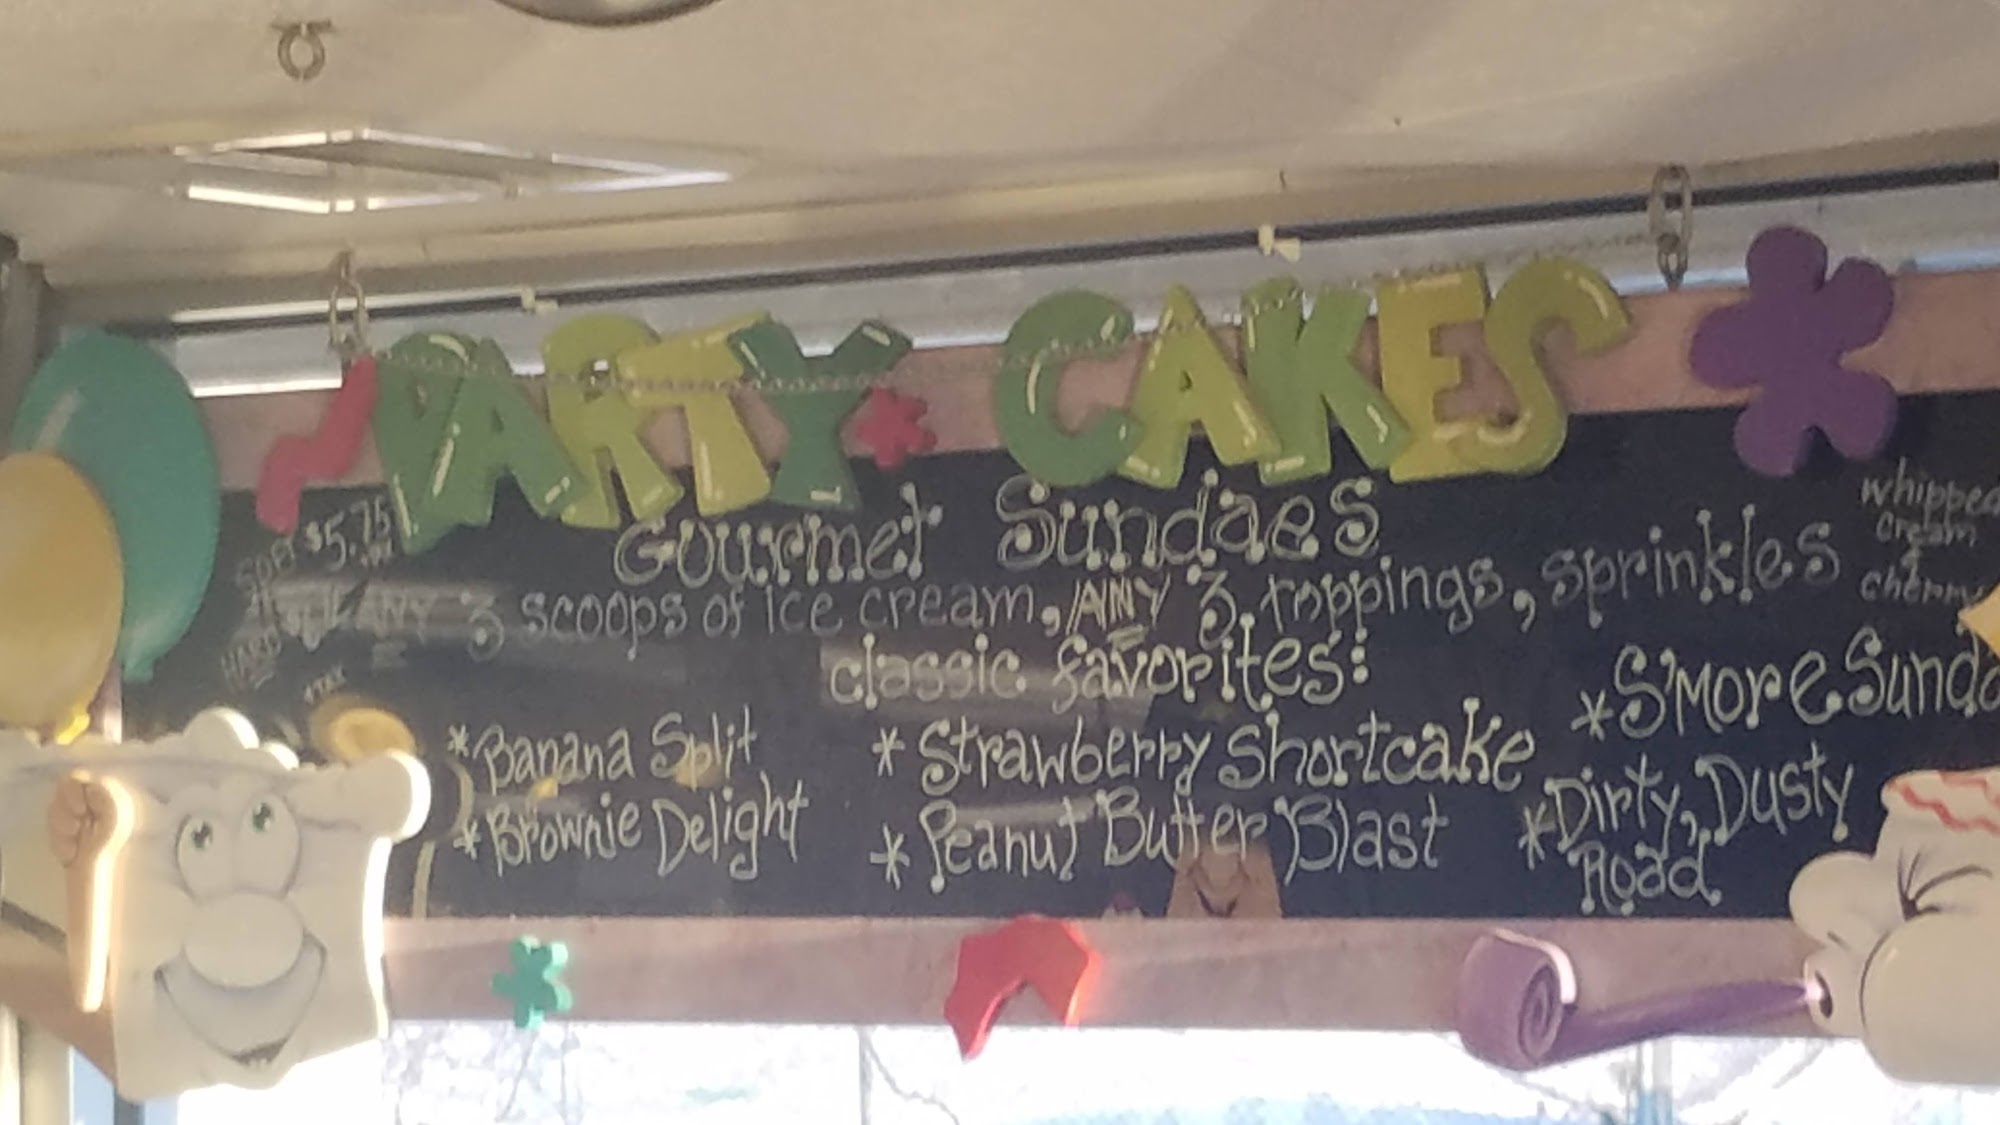 PARTY CAKES
Gourmet Sundaes
$5.75
ANY 3 scoops of ice cream, ANY 3 toppings, sprinkles
whipped
cream
&
cherry
HARD
+TAX
classic favorites:
*Banana Split
*Brownie Delight
*Strawberry Shortcake
*Peanut Butter Blast
*S'more Sunda
*Dirty, Dusty
Road